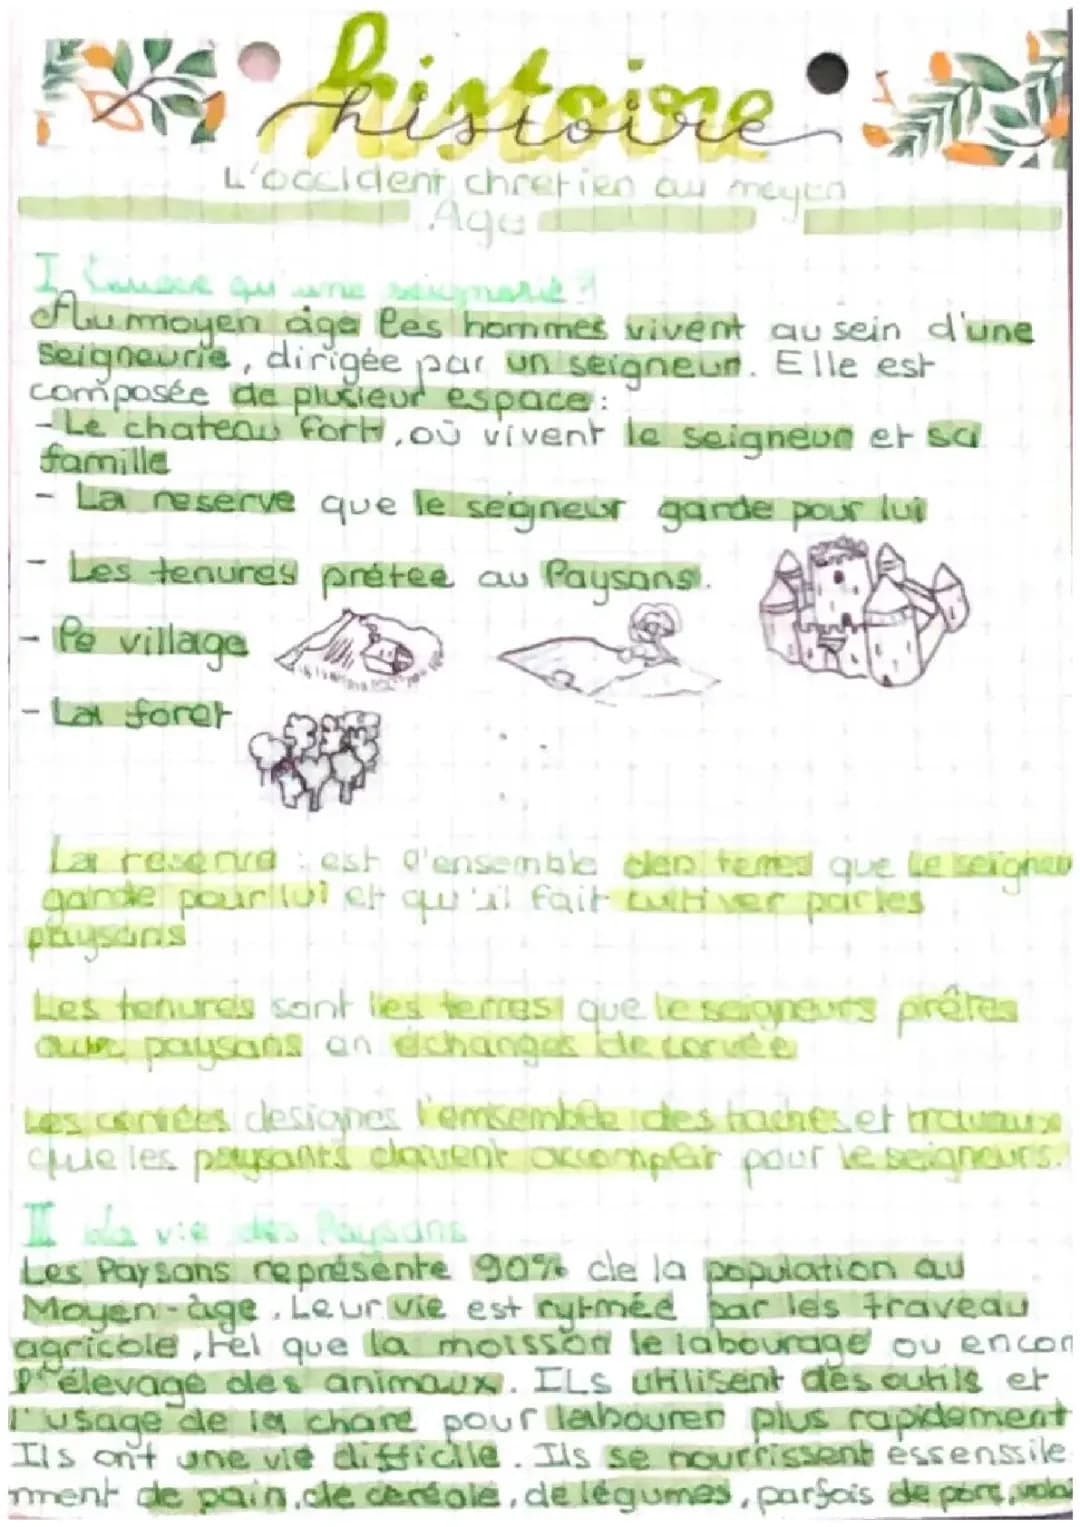 histoire
L'occident chretien au moyen
Age
I qu une seigneurie ?
Au moyen âge les hommes vivent au sein d'une
seigneurie, dirigée par un seigneur. Elle est
composée de plusieur espace :
- Le chateau fort, où vivent le seigneur et sa
famille
- La reserve que le seigneur garde pour lui
- Les tenures prétée au Paysans.
- le village
- La foret
La reserve : est l'ensemble des terres que le seigneu
garde pour lui et qu'il fait cultiver par les
paysans
Les tenures sont les terres que le seigneurs prêtes
aux paysans en échanges de corvée
Les corvées designes l'emsemble des taches et travaux
que les paysants doivent accomplir pour le seigneurs.
II La vie des Paysans
Les Paysans représente 90% de la population au
Moyen-âge. Leur vie est rytmée par les traveau
agricole, tel que la moisson le labourage ou encor
l'élevage des animaux. ILs utilisent des outils et
l'usage de la chare pour labourer plus rapidement
Ils ont une vie difficile. Ils se nourrissent essenssile
mment de pain, de céréale, de légumes, parfois de porc, vola